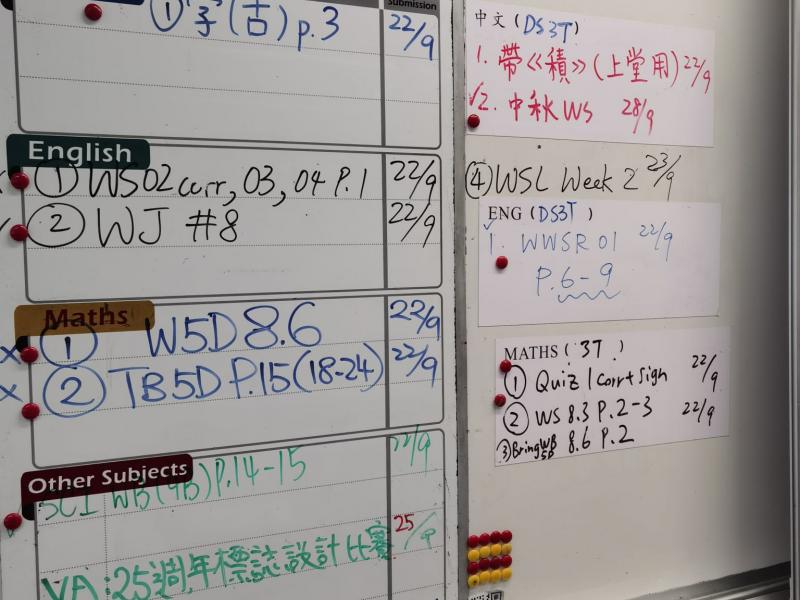 Submission
① 字(古) p.3 22/9
English
① WS02 corr, 03, 04 P.1 22/9
② WJ #8 22/9
Maths
① W5D 8.6 22/9
② TB5D P.15(18-24) 22/9
Other Subjects
SCI WB(9B) P.14-15 22/9
VA:25週年標誌設計比賽 25/9
中文(DS3T)
1. 帶《積》(上堂用) 22/9
2. 中秋WS 28/9
④ WSL Week 2 23/9
ENG (DS3T)
1. WWSR 01 22/9
P.6-9
MATHS (3T)
① Quiz 1 corr+sign 22/9
② WS 8.3 P.2-3 22/9
③ Bring WB 5D 8.6 P.2